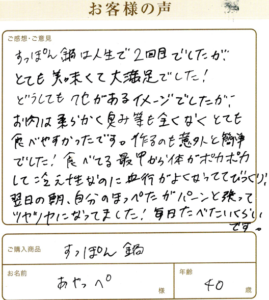 お客様の声
ご感想・ご意見
すっぽん鍋は人生で2回目でしたが、
とても美味くて大満足でした！
どうしてもクセがあるイメージでしたが、
お肉は柔らかく臭み等も全くなくとても
食べやすかったです。作るのも意外と簡単
でした！食べてる最中から体がポカポカ
して冷え性なのに血行がよくなっててびっくり！
翌日の朝、自分のほっぺたがパーンと張って
ツヤツヤになってました！毎日たべたいくらい
です。
ご購入商品
すっぽん鍋
お名前
あやっぺ 様
年齢
40 歳